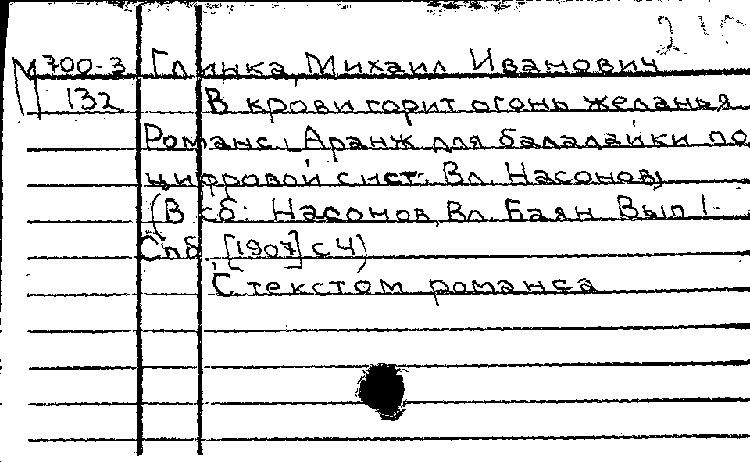 210
М 700-3 Глинка, Михаил Иванович
132 В крови горит огонь желанья
Романс. Аранж для балалайки по
цифровой сист. Вл. Насонов
(В сб: Насонов, Вл. Баян Вып 1.
Спб, [1907] с. 4)
С текстом романса